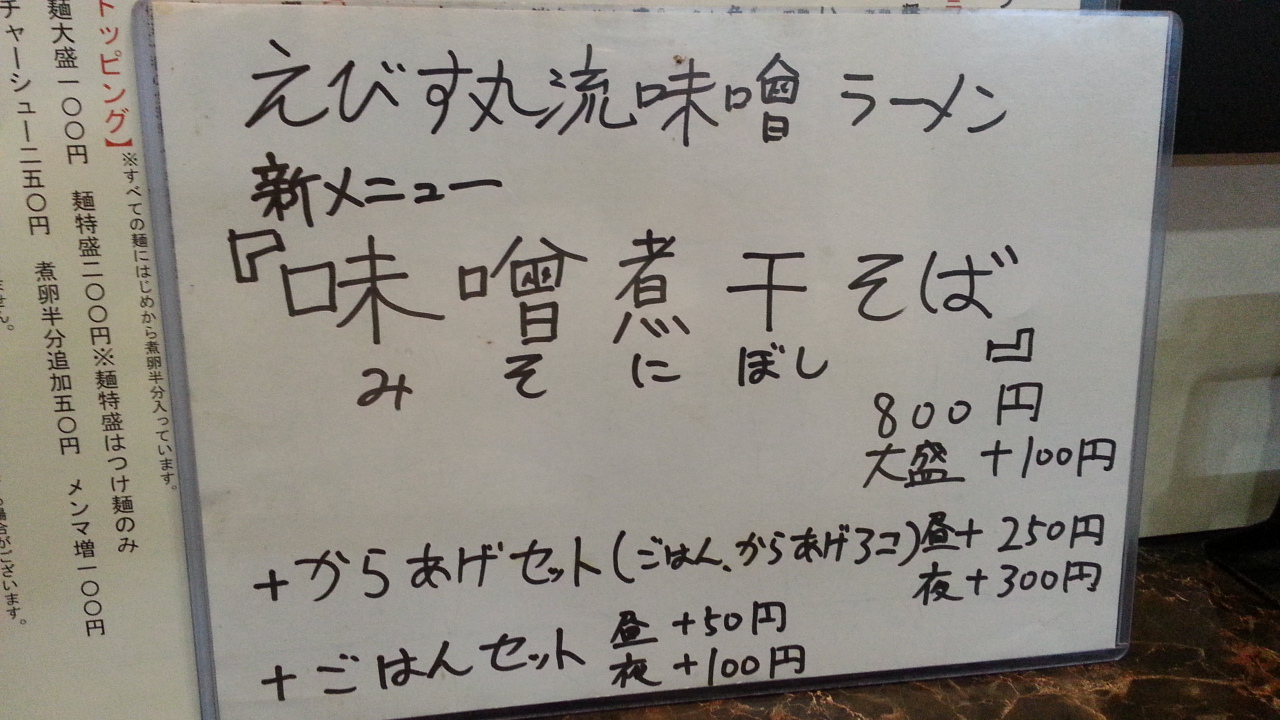 えびす丸流味噌ラーメン
新メニュー
『味噌煮干そば』
みそにぼし
800円
大盛+100円
+からあげセット(ごはん、からあげ3コ)昼+250円
夜+300円
+ごはんセット 昼+50円
夜+100円
トッピング】※すべての麺にはじめから煮卵半分入っています。
麺大盛一〇〇円 麺特盛二〇〇円※麺特盛はつけ麺のみ
チャーシュー二五〇円 煮卵半分追加五〇円 メンマ増一〇〇円
ません。
場合がございます。